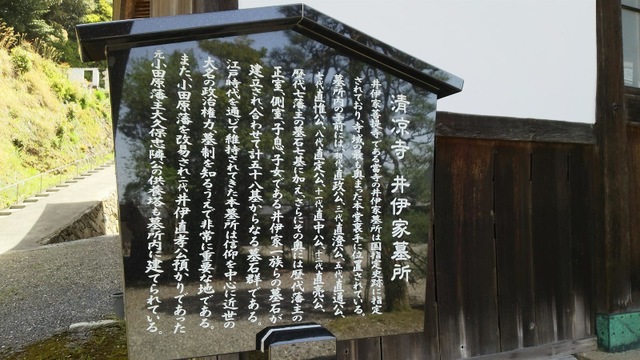 清凉寺 井伊家墓所
井伊家菩提寺である当寺の井伊家墓所は国指定史跡に指定
されており、寺域の最も奥まった本堂裏手に位置されている。
墓所内の手前には初代直政公、三代直澄公、五代直通公、
六代直恒公、八代直定公、十一代直中公、十二代直亮公、
歴代七藩主の墓石七基に加え、さらにその奥には歴代藩主の
正室、側室、子息、子女である井伊家一族らの墓石が
建立され、合わせて計五十八基からなる墓石群である
江戸時代を通じて維持されてきた本墓所は信仰を中心に近世の
大名の政治権力、墓制を知るうえで非常に重要な地である。
また、小田原藩を改易され二代井伊直孝公預かりであった
元小田原藩主大久保忠隣公の供養塔も墓所内に建てられている。